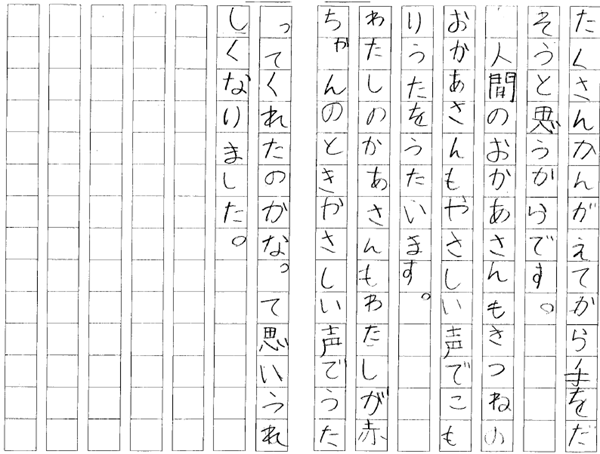 たくさんかんがえてから手をだ
そうと思うからです。
人間のおかあさんもきつねの
おかあさんもやさしい声でこも
りうたをうたいます。
わたしのかあさんもわたしが赤
ちゃんのときやさしい声でうた
ってくれたのかな。って思いうれ
しくなりました。